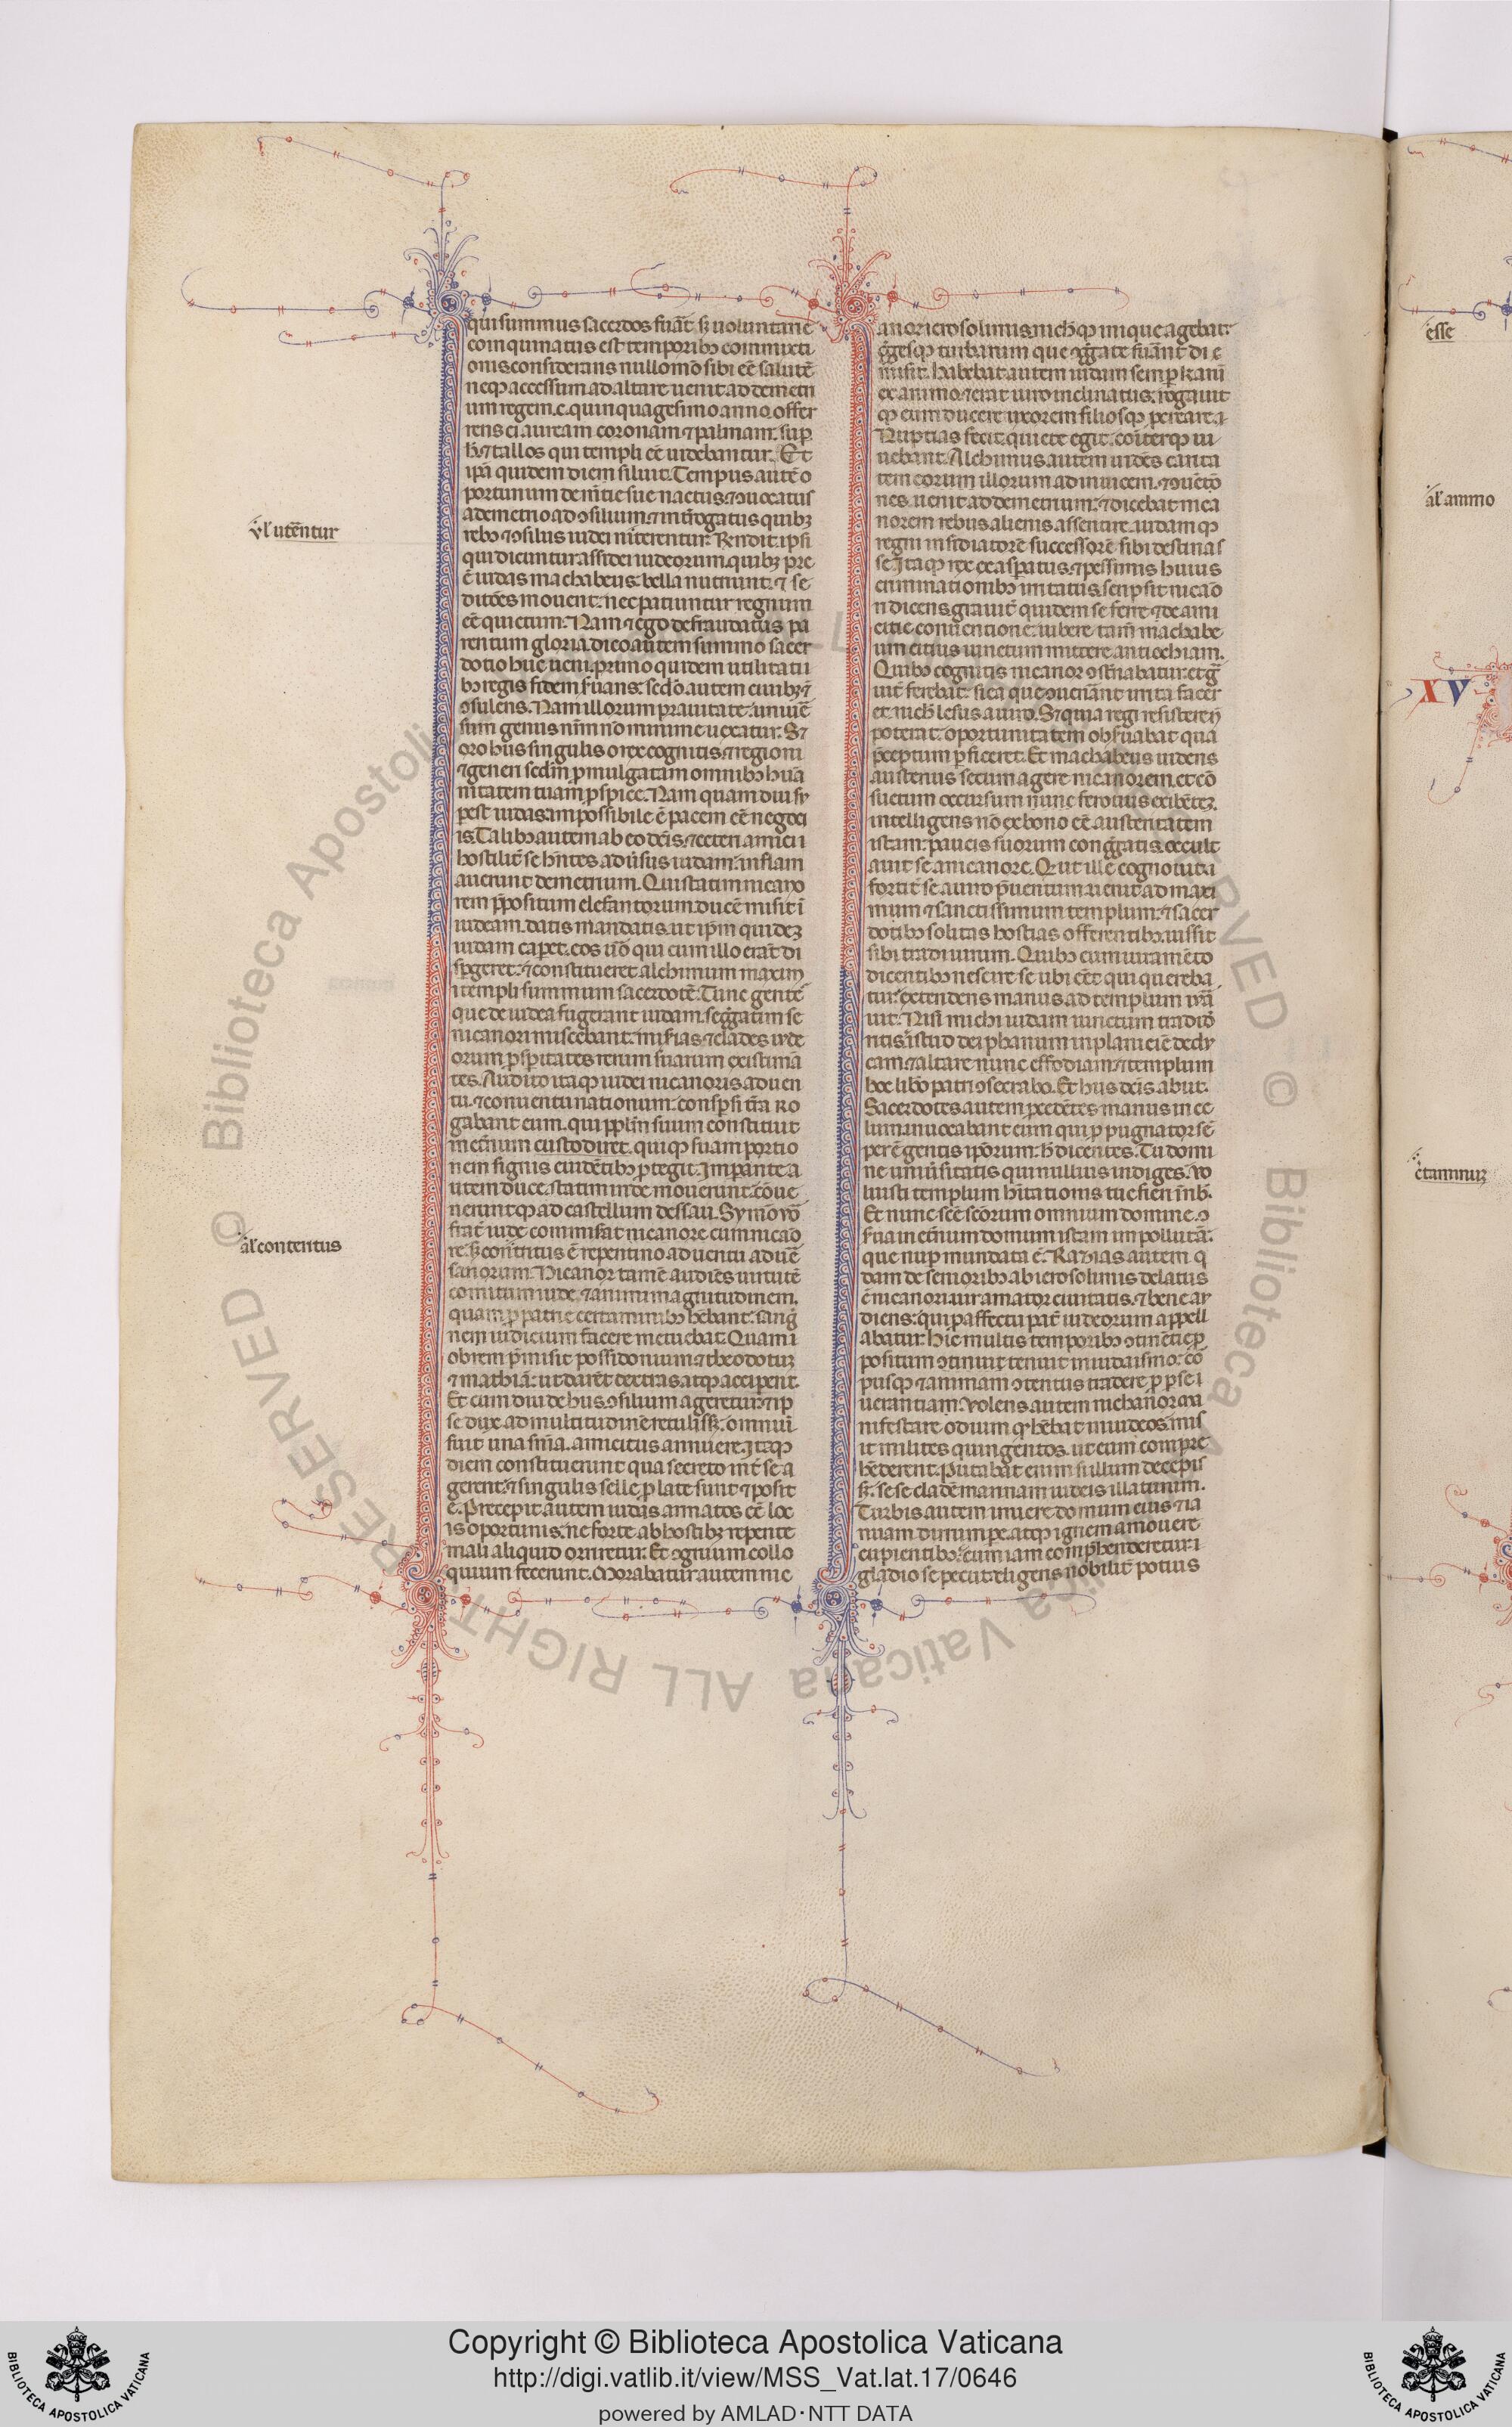 qui summus sacerdos fuāt. sꝫ uoluntarie
coinquinatus est temporibꝫ commixti
onis. considerans nullo mō sibi eē salutē
neqꝫ accessum ad altare. uenit ad demetri
um regem. c. quinquagesimo anno. offer
rens ei auream coronam ⁊ palmam. sup̄
h̄. ⁊ tallos qui templi eē uidebantur. Et
ip̄a quidem die siluit. Tempus autē o
portunum dem̄tie sue nactus. ⁊ uocatus
a demetrio ad ɔsilium. ⁊ int̄rogatus quibꝫ
rebꝫ ⁊ ɔsiliis iudei niterentur. Rn̄dit. ipsi
qui dicuntur assidei iudeorum. quibꝫ pre
ē iudas machabeus. bella nutriunt. ⁊ se
ditōes mouent. nec patiuntur regnum
eē quietum. Nam ⁊ ego defraudatus pa
rentum gloria. dico autem summo sacer
dotio huc ueni. primo quidem utilitati
bꝫ regis fidem s̄uans. sedo autem ciuibꝫ ⁊
ɔsulens. Nam illorum prauitate. uniuē
sum genus nr̄m nō minime uexatur. Sꝫ
oro hiis singulis o rex cognitis. ⁊ regioni
⁊ generi sedm̄ p̄mulgatam omnibꝫ huā
nitatem tuam p̄spice. Nam quam diu su
pest iudas. impossibile ē pacem eē negoci
is. Talibꝫ autem ab eo dc̄is. ⁊ ceteri amici
hostilit̄ se hn̄tes aduīsus iudam. inflam
auerunt demetrium. Qui statim nicano
rem p̄positum elefantorum. ducē misit ī
iudeam. datis mandatis. ut ip̄m quideꝫ
iudam caperet. eos u̅o qui cum illo erāt di
sp̄geret. ⁊ constitueret alchimum maxim
i templi summum sacerdotē. Tunc gente
que de iudea fugerant iudam. seḡgatim se
nicanori miscebant. mis̄ias ⁊ clades iude
orum p̄speritates rerum suarum existimā
tes. Audito itaqꝫ iudei nicanoris aduen
tu. ⁊ conuentu nationum. consp̄si tr̄a ro
gabant eum. qui pplm̄ suum constituit
in et̄num custodiret. quiqꝫ suam portio
nem signis euidētibꝫ protegit. Imperante a
utem duce. statim inde mouerunt. cōue
neruntqꝫ ad castellum dessau. Symō ū̅o
frat̄ iude commis̄at nicanore cum nicao
re. sꝫ cont̄ritus ē repentino aduentu aduē
sariorum. Nicanor tamē audiēs uirtutē
comitum iude. ⁊ animi magnitudinem.
quam pro patrie certaminibꝫ hēbant. sang̈
nem iudicium facere metuebat. Quam i
obrem p̄misit possidonium ⁊ theodotuꝫ
⁊ mathiā. ut darēt dextras atqꝫ acciperent.
Et cum diu de hiis ɔsilium ageretur. ⁊ ip
se dux ad multitudinē retulissꝫ. omniū
fuit una sn̄ia. amicitiis annuere. Itaqꝫ
diem constituerunt qua secreto int̄ se a
gerent. ⁊ singulis selle prolate sunt ⁊ posit
e. Precepit autem iudas armatos eē loc
is oportunis. ne forte ab hostibꝫ repente
mali aliquid oriretur. Et ɔgruum collo
quium fecerunt. Morabatur autem nic
anor ierosolimis. nichqꝫ inique agebat.
g̈gesqꝫ turbarum que ɔg̈gate fuānt di e
misit. Habebat autem iudam semp̄ karū
ex animo. ⁊ erat uiro inclinatus. rogauit
qꝫ eum ducere uxorem filiosqꝫ procreare.
Nuptias fecit. quiete egit. cōiterqꝫ ui
uebant. Alchimus autem uidēs carita
tem eorum illorum ad inuicem. ⁊ ɔuētō
nes. uenit ad demetrium. ⁊ dicebat nica
norem rebus alienis assentire. iudam qꝫ
regni insidiatorē successorē sibi destinas
se. Itaqꝫ rex exasp̄atus. ⁊ pessimis huius
criminationibꝫ irritatus. scripsit nicāo
ri dicens. grauit̄ quidem se ferre ⁊ de ami
citie conuentione. iubere tam̄ machabe
um citius uinctum mittere antiochiam.
Quibꝫ cognitis nicanor ɔst̄nabatur. et g̈
uit̄ ferebat. si ea que ɔuenānt irrita facer
et. nich̄ lesus a uiro. Sꝫ quia regi resistere nō
poterat. oportunitatem obs̄uabat qua
p̄ceptum p̄ficeret. Et machabeus uidens
austerius secum agere nicanorem. et cō
suetum occursum nunc ferocius exibētem.
intelligens nō ex bono eē austeritatem
istam. paucis suorum cong̈gatis. occult
auit se a nicanore. Qꝫ ut ille cognouit
fortit̄ se a uiro p̄uentum. uenit ad maxi
mum ⁊ sanctissimum templum. ⁊ sacer
dotibꝫ solitas hostias offerentibꝫ. iussit
sibi tradi uirum. Quibꝫ cum iuramēto
dicentibꝫ nescire se ubi eēt qui quereba
tur. extendens manus ad templum iurā
uit. Nisi michi iudam uinctum tradide
ritis. istud dei phanum in planiciē dedu
cam ⁊ altare nunc effodiam. ⁊ templum
hoc libo patri ɔsecrabo. Et hiis dc̄is abiit.
Sacerdotes autem p̄tendētes manus in ce
lum. inuocabant eum qui p̄pugnator sē
per ē gentis ip̄orum. h̄ dicentes. Tu domi
ne uniūsitatis qui nullius indiges. uo
luisti templum hītationis tue fieri in nobis.
Et nunc scē scōrum omnium domine. ɔ
s̄ua in et̄num domum istam impollutā.
que nup̄ mundata ē. Razias autem q
dam de senioribꝫ ab ierosolimis delatus
ē nicanori. uir amator ciuitatis. ⁊ bene au
diens. qui p̄ affectu pat̄ iudeorum appell
abatur. Hic multis temporibꝫ ɔtinētie p̄
positum ɔtinuit. tenuit in iudaismo. cō
pusqꝫ ⁊ animam ɔtentus tradere. p̄ p̄se
uerantiam. Volens autem nichanor ma
nifestare odium qꝫ hēbat in iudeos. mis
it milites quingentos. ut eum compre
hēderent. Putabat enim si illum decepis
sꝫ. se se cladē magnam iudeis illaturum.
Turbis autem irruere domum eius ⁊ ia
nuam dirumpe. atqꝫ ignem amouere
cupientibꝫ. cum iam comp̄henderetur.
gladio se peciit. eligens nobilit̄ potius
vl̄ utēntur
al̄ contentus
esse
al̄ animo
XV
Copyright © Biblioteca Apostolica Vaticana
http://digi.vatlib.it/view/MSS_Vat.lat.17/0646
powered by AMLAD·NTT DATA
BIBLIOTECA APOSTOLICA VATICANA
BIBLIOTECA APOSTOLICA VATICANA
© Biblioteca Apostolica Vaticana ALL RIGHT RESERVED